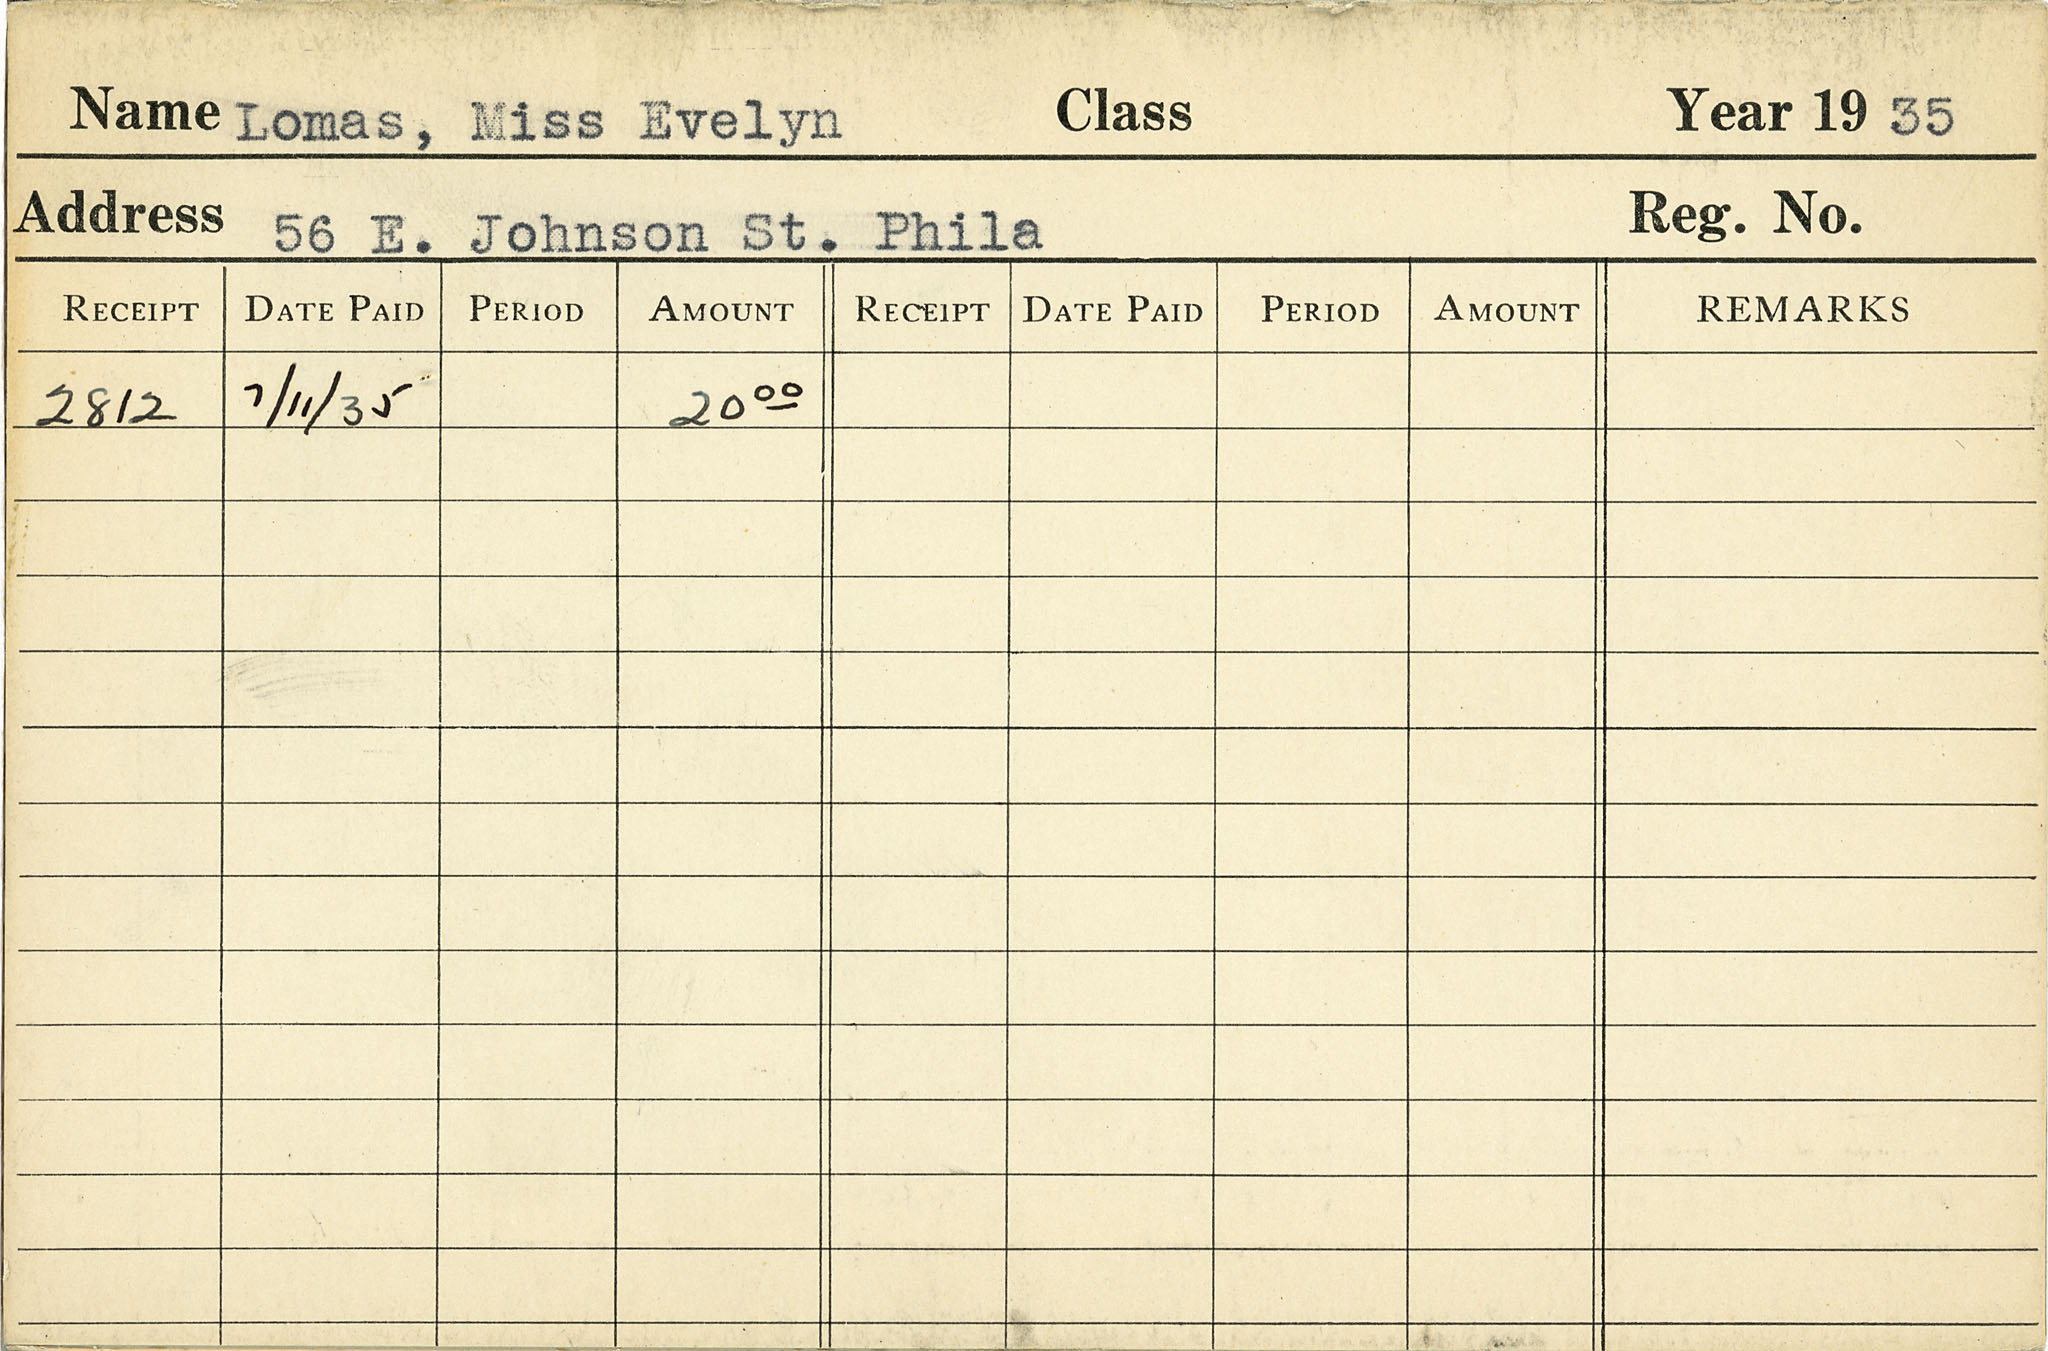 Name Lomas, Miss Evelyn Class Year 19 35
Address 56 E. Johnson St. Phila Reg. No.
RECEIPT DATE PAID PERIOD AMOUNT RECEIPT DATE PAID PERIOD AMOUNT REMARKS
2812 7/11/35 20 00